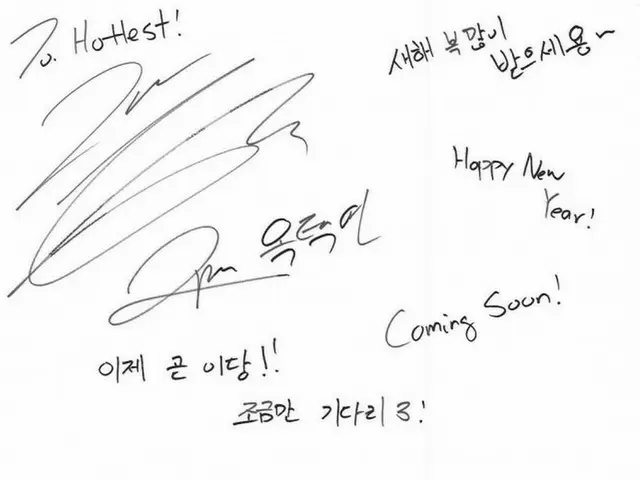 To. Hottest!
새해 복많이
받으세용~
Happy New
Year!
2pm 옥택연
Coming Soon!
이제 곧 이당!!
조금만 기다리3!